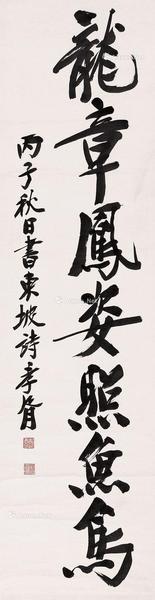 龍章鳳姿照魚鳥
丙子秋日書東坡詩孝胥